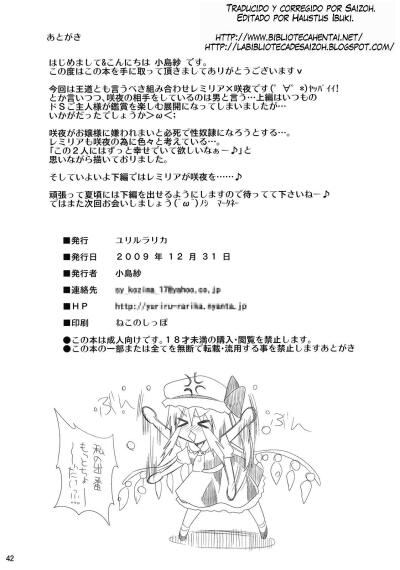 Traducido y corregido por Saizoh.
Editado por Haustus Ibuki.
http://www.bibliotecahentai.net/
http://labibliotecadesaizoh.blogspot.com/
あとがき
はじめまして&こんにちは 小島紗 です。
この度はこの本を手に取って頂きましてありがとうございますｖ
今回は王道とも言うべき組み合わせレミリア×咲夜です(ﾟ∀ﾟ*)ﾔｯﾊﾞｲｲ!
とか言いつつ、咲夜の相手をしているのは男と言う…上編はいつもの
ドＳご主人様が鑑賞を楽しむ展開になってしまいましたが…
いかがだったでしょうか>ω<;
咲夜がお嬢様に嫌われまいと必死で性奴隷になろうとする…。
レミリアも咲夜の為に色々と考えている…。
「この２人にはずっと幸せでいて欲しいなぁ～♪」と
思いながら描いておりました。
そしていよいよ下編ではレミリアが咲夜を……♪
頑張って夏頃には下編を出せるようにしますので待ってて下さいね～♪
ではまた次回お会いしましょう(´ω`)ﾉｼ ﾏｰﾀﾈｰ
■発行 ユリルラリカ
■発行日 ２００９年１２月３１日
■発行者 小島紗
■連絡先 sy_kozima_17@yahoo.co.jp
■ＨＰ http://yuriru-rarika.nyanta.jp
■印刷 ねこのしっぽ
●この本は成人向けです。１８才未満の購入・閲覧を禁止します。
●この本の一部または全てを無断で転載・流用する事を禁止しますあとがき
ぶん
ぶん
私の出番
もっとちょーだいっ!!
42